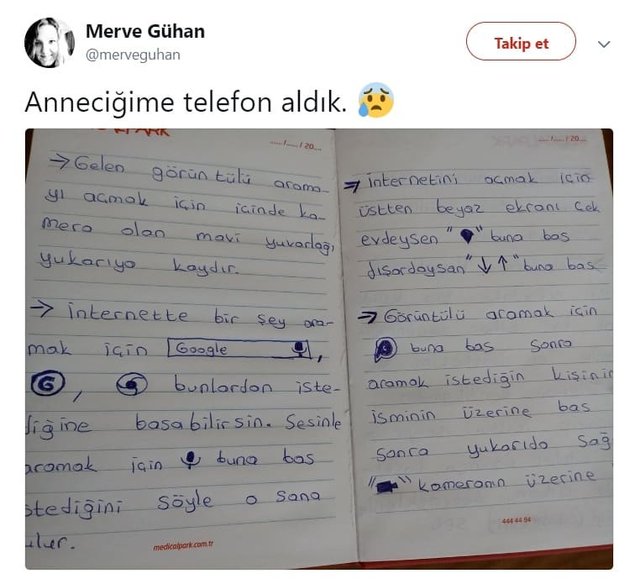 Merve Gühan
@merveguhan
Takip et
Anneciğime telefon aldık.
PARK
..../..../ 20....
→ Gelen görüntülü arama-
yı açmak için içinde ka-
mera olan mavi yuvarlağı
yukarıya kaydır.
→ İnternette bir şey ara-
mak için Google ,
G , bunlardan iste-
diğine basabilirsin. Sesinle
aramak için buna bas
istediğini söyle o sana
ulur.
medicalpark.com.tr
..../..../ 20....
→ İnternetini açmak için
üstten beyaz ekranı çek
evdeysen " " buna bas
dışardaysan "↓↑" buna bas
→ Görüntülü aramak için
buna bas sonra
aramak istediğin kişinin
isminin üzerine bas
sonra yukarıda sağ
" " kameranın üzerine
444 44 94